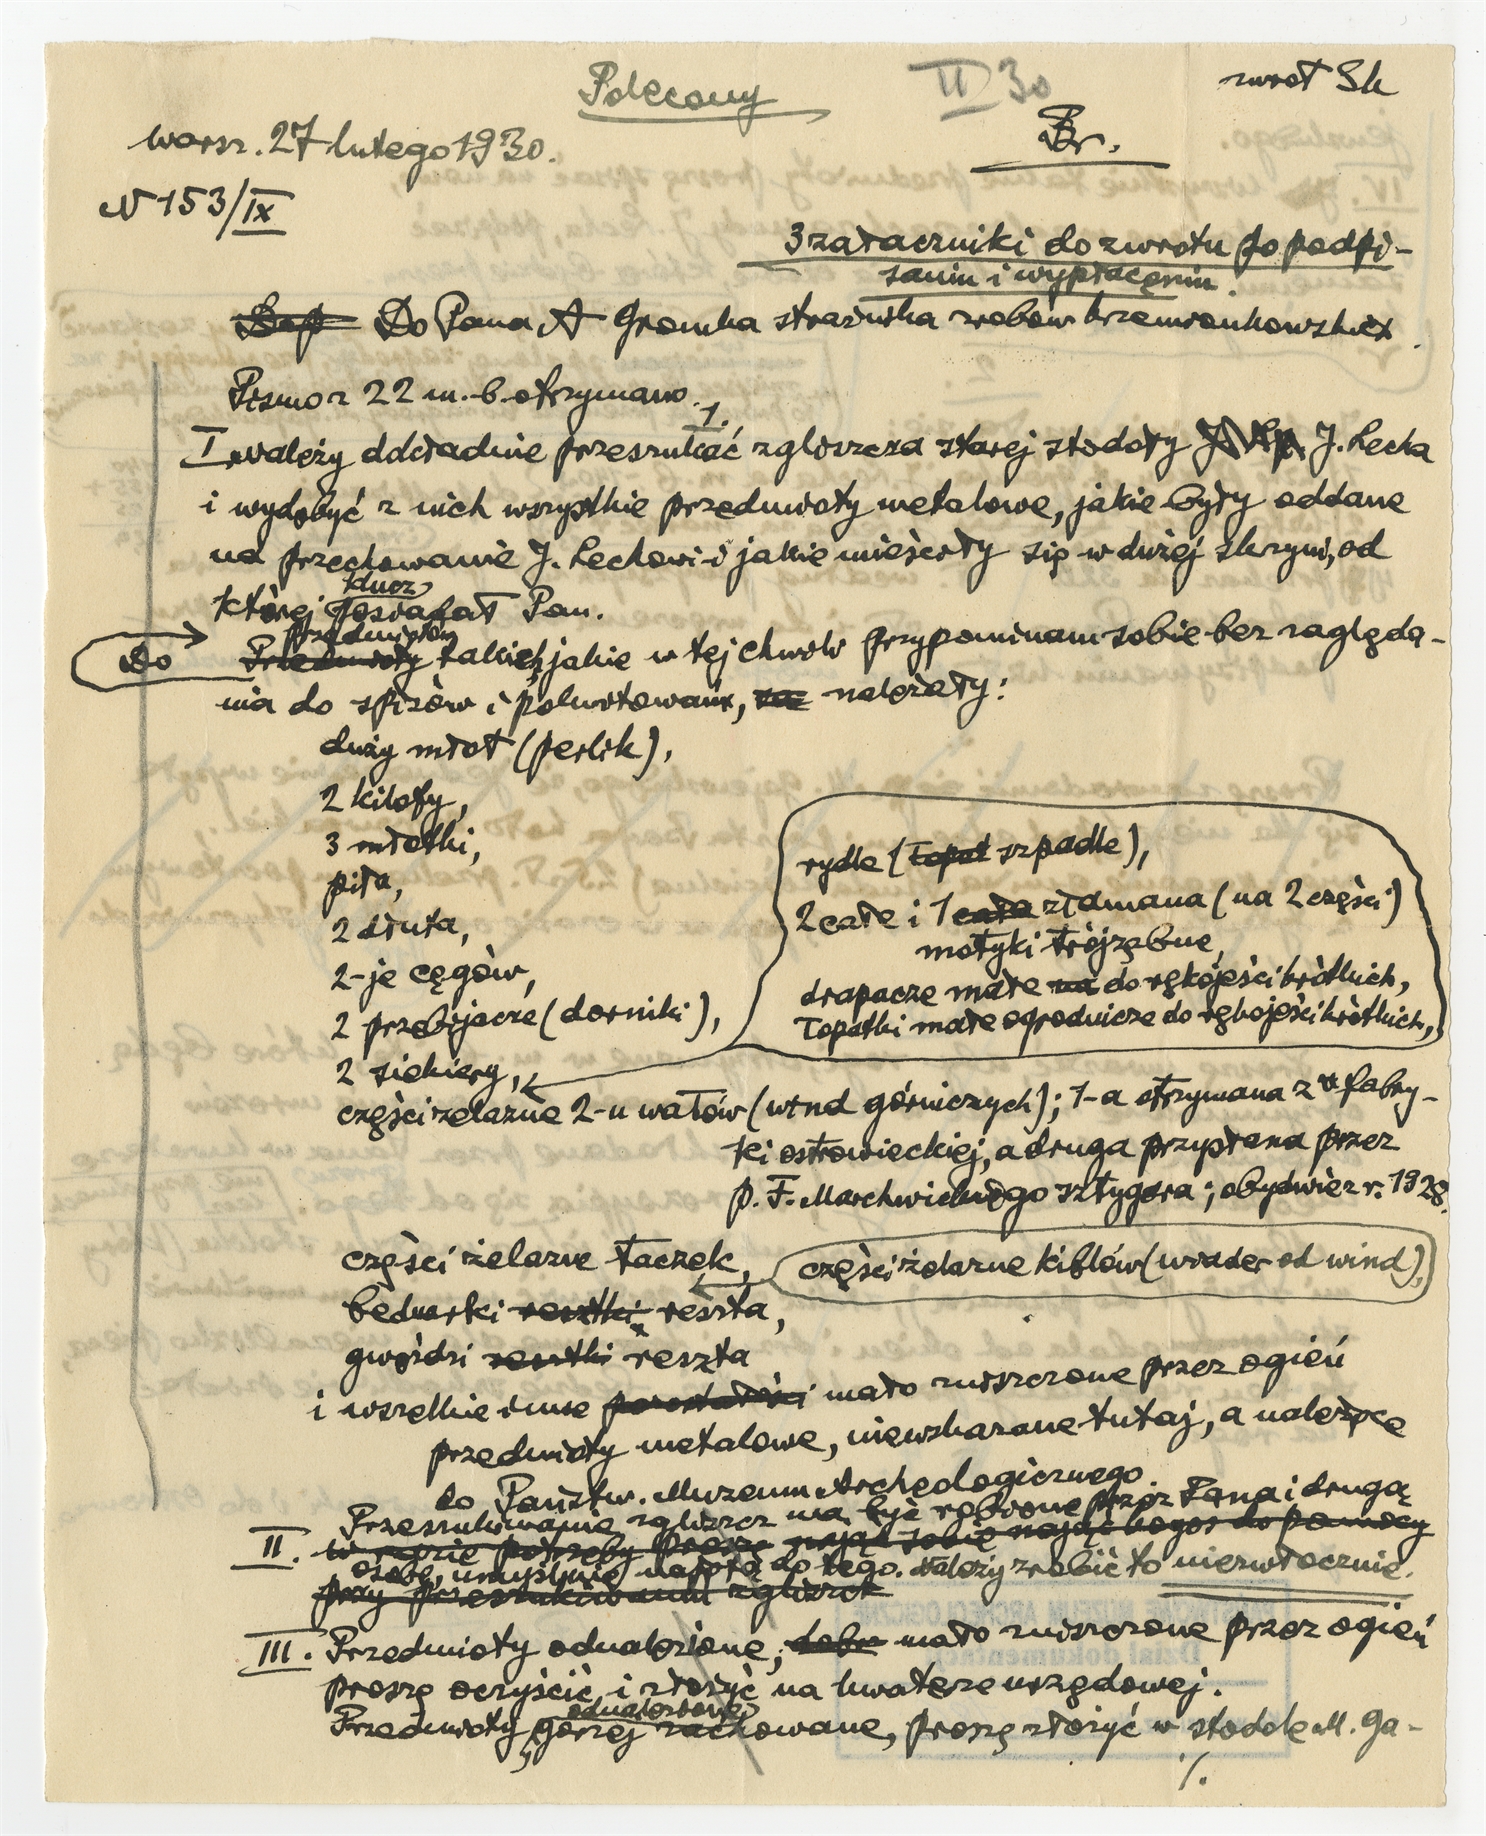 Polecony
II 30
zwrot Sk
Br.
warsz. 27 lutego 1930.
N 153/IX
3 załączniki do zwrotu po podpi-
saniu i wypłaceniu.
Do Pana A Gromka strażnika robów krzemionkowskich.
Pismo z 22 m. b. otrzymano.
1.
I należy dokładnie przeszukać zgliszcza starej stodoły J. Lecha
i wydobyć z nich wszystkie przedmioty metalowe, jakie były oddane
na przechowanie J. Lechowi i jakie mieściły się w dużej skrzyni, od
której klucz posiadał Pan.
Do przedmiotów takich, jakie w tej chwili przypominam sobie bez zagląda-
nia do spisów i pokwitowań, należały:
duży młot (perlik),
2 kilofy,
3 młotki,
piła,
2 dłuta,
2-je cęgów,
2 przebijacze (dorniki),
2 siekiery,
rydle (szpadle),
2 całe i 1 złamana (na 2 części)
motyki trójzębne,
drapacze małe do rękojeści krótkich,
łopatki małe ogrodnicze do rękojeści krótkich,
części żelazne 2-u wałów (wind górniczych); 1-a otrzymana z fabry-
ki ostrowieckiej, a druga przysłana przez
p. F. Marchwickiego sztygara; obydwie z r. 1928.
części żelazne taczek,
części żelazne kibłów (wiader od wind),
bednarki resztki reszta,
gwoździ resztki reszta
i wszelkie inne pozostałości mało zniszczone przez ogień
przedmioty metalowe, niewskazane tutaj, a należące
do Państw. Muzeum Archeologicznego.
II. Przeszukiwanie zgliszcz ma być robione przez Pana i drugą
w razie potrzeby proszę nająć sobie kogoś do pomocy
osobę, umyślnie najętą do tego. Należy zrobić to niezwłocznie.
przy przeszukiwaniu zgliszcz
III. Przedmioty odnalezione, mało zniszczone przez ogień
proszę oczyścić i złożyć na kwaterze urzędowej.
Przedmioty odnalezione, gorzej zachowane, proszę złożyć w stodole M. Ga-
./.